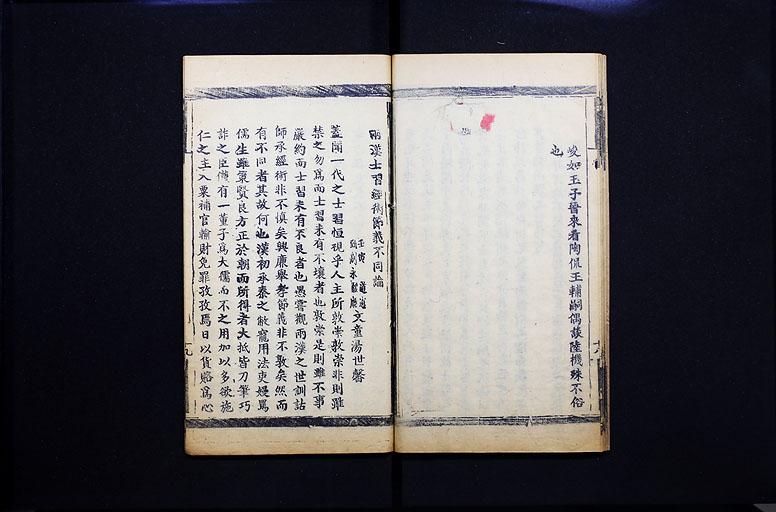 峻如王子晉來看陶侃王輔嗣偶談陸機殊不俗
也
兩漢士習經術節義不同論
文童湯世馨
蓋聞一代之士習恒視乎人主所敦崇敦崇非則雖
禁之勿爲而士習未有不壞者也敦崇是則雖不事
嚴約而士習未有不良者也愚嘗觀兩漢之世訓詁
師承經術非不慎矣興廉舉孝節義非不敦矣然而
有不同者其故何也漢初承秦之敝寵用法吏嫚罵
儒生雖策賢良方正於朝而所得者大抵皆刀筆巧
詐之臣惟有一董子爲大儒而不之用加以多欲施
仁之主入粟補官輸財免罪孜孜焉日以貨賂爲心